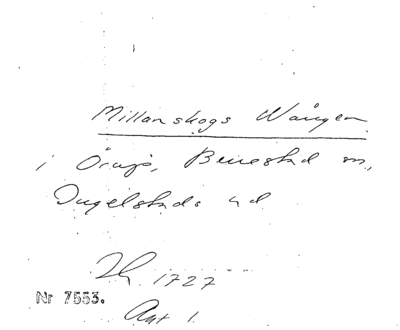 Millanskogs Wången
i Örup, Benestad sn,
Ingelstads hd
1727
Nr 7553.
Akt 1.